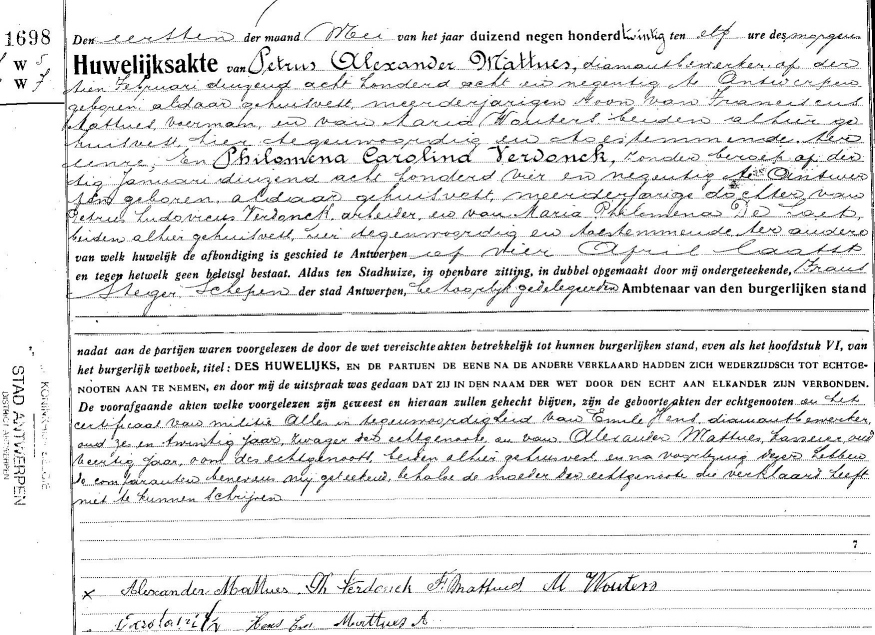 1698
W 5
W 7
Den eersten der maand Mei van het jaar duizend negen honderd twintig ten elf ure des morgens
Huwelijksakte van Petrus Alexander Mattues, diamantbewerker, op der
tien Februari duizend acht honderd acht en negentig te Antwerpen
geboren, aldaar gehuisvest, meerderjarigen zoon van Franciscus
Mattues voerman, en van Maria Wouters beiden alhier ge
huisvest, hier tegenwoordig en toestemmende, ter
eenre; En Philomena Carolina Verdonck, zonder beroep op der
tig Januari duizend acht honderd vier en negentig te Antwer
pen geboren, aldaar gehuisvest, meerderjarige dochter van
Petrus Ludovicus Verdonck, arbeider, en van Maria Philomena De
beiden alhier gehuisvest, hier tegenwoordig en toestemmende ter andere
van welk huwelijk de afkondiging is geschied te Antwerpen vier April laatst
en tegen hetwelk geen beletsel bestaat. Aldus ten Stadhuize, in openbare zitting, in dubbel opgemaakt door mij ondergeteekende, Frans
Steger Schepen der stad Antwerpen, behoorlijk gedelegeerden Ambtenaar van den burgerlijken stand
nadat aan de partijen waren voorgelezen de door de wet vereischte akten betrekkelijk tot hunnen burgerlijken stand, even als het hoofdstuk VI, van
het burgerlijk wetboek, titel: DES HUWELIJKS, EN DE PARTIJEN DE EENE NA DE ANDERE VERKLAARD HADDEN ZICH WEDERZIJDSCH TOT ECHTGE-
NOOTEN AAN TE NEMEN, en door mij de uitspraak was gedaan DAT ZIJ IN DEN NAAM DER WET DOOR DEN ECHT AAN ELKANDER ZIJN VERBONDEN.
De voorafgaande akten welke voorgelezen zijn geweest en hieraan zullen gehecht blijven, zijn de geboorteakten der echtgenooten en het
certificaat van militie Alles in tegenwoordigheid van Emile Hens, diamantbewerker,
oud zes en twintig jaar, zwager der echtgenoote, en van Alexander Mattues, oud
veertig jaar, oom des echtgenoots, beiden alhier gehuisvest en na voorlezing dezer hebben
de comparanten benevens mij geteekend, behalve de moeder der echtgenoote die verklaard heeft
niet te kunnen schrijven
7
x Alexander Mattues Ph Verdonck F Mattues M Wouters
Hens Em Mattues A
STAD ANTWERPEN
DISTRICT ANTWERPEN